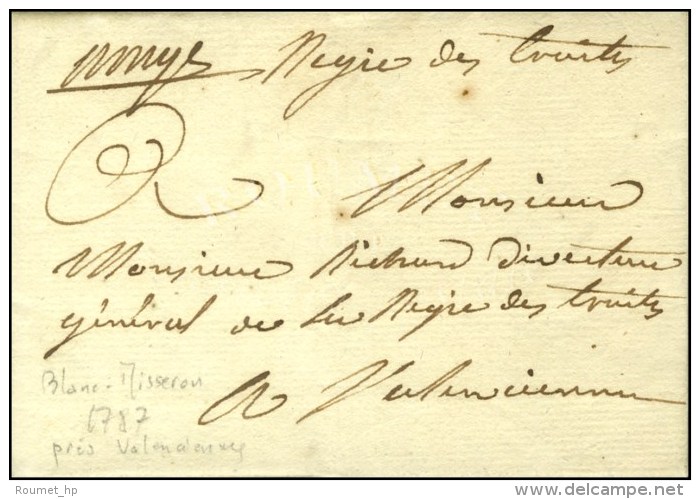 Regie des traites
A Monsieur
Monsieur Richard directeur
général de la Regie des traites
A Valenciennes
Blanc-Misseron
1787
près Valenciennes
Roumet_hp
delcampe.net